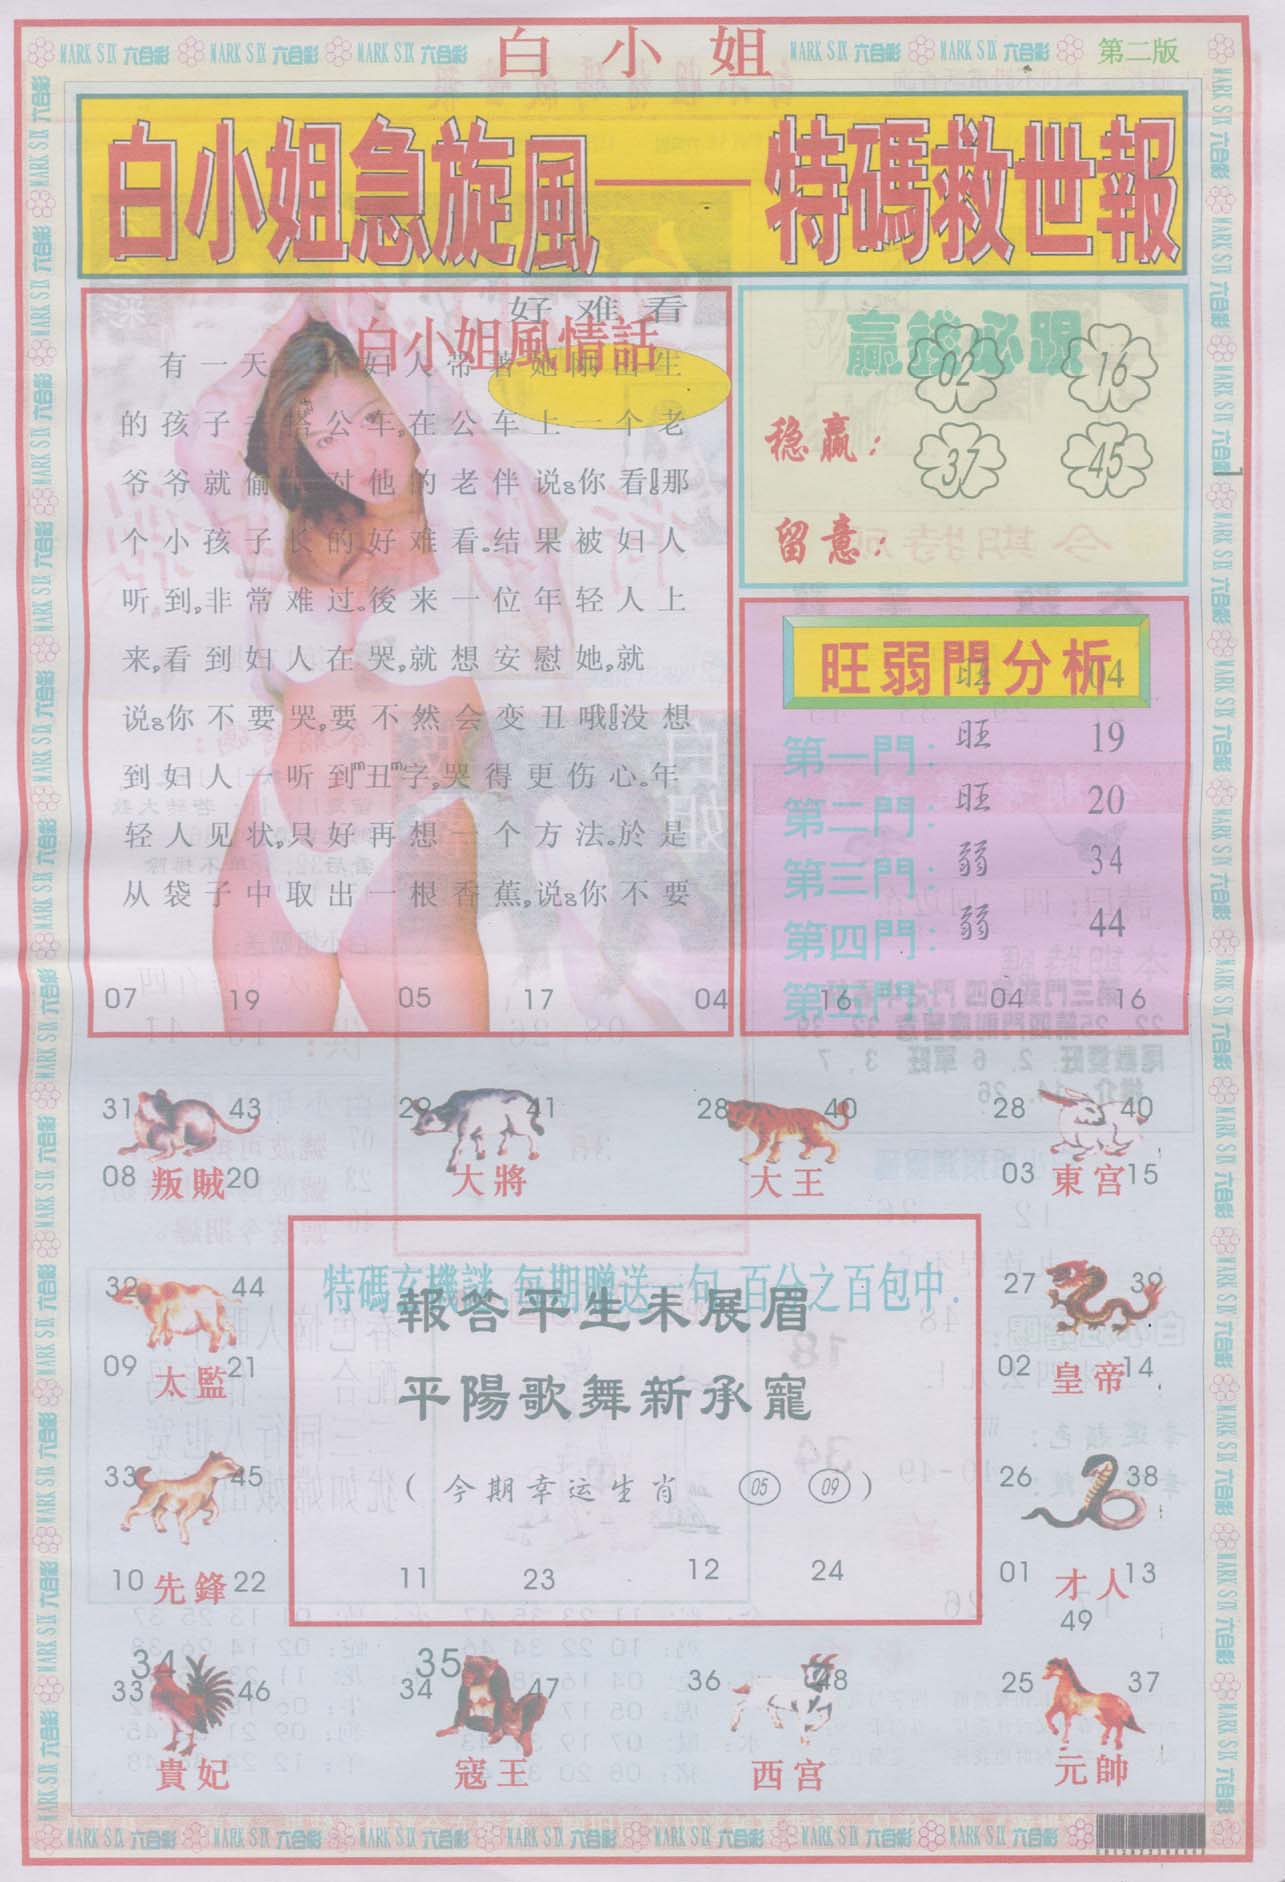 MARK SIX 六合彩 MARK SIX 六合彩 MARK SIX 六合彩 白小姐 MARK SIX 六合彩 MARK SIX 六合彩 第二版
白小姐急旋風——特碼救世報
好难看
白小姐風情話
有一天
妇人带著她刚出生
的孩子去搭公车,在公车上一个老
爷爷就偷
对他的老伴说:你看!那
个小孩子长的好难看.结果被妇人
听到,非常难过.後来一位年轻人上
来,看到妇人在哭,就想安慰她,就
说:你不要哭,要不然会变丑哦!没想
到妇人一听到"丑"字,哭得更伤心.年
轻人见状,只好再想一个方法.於是
从袋子中取出一根香蕉,说:你不要
07 19 05 17 04 16 04 16
贏錢必跟
02 16
稳赢:
37 45
留意:
旺弱門分析
旺 04
第一門: 旺 19
第二門: 旺 20
第三門: 弱 34
第四門: 弱 44
第五門:
31 43 29 41 28 40 28 40
08 叛賊 20 大將 大王 03 東宫 15
32 44
09 太監 21
33 45
10 先鋒 22
特碼玄機謎,每期贈送一句,百分之百包中.
報答平生未展眉
平陽歌舞新承寵
(今期幸运生肖 05 09)
11 23 12 24
27 39
02 皇帝 14
26 38
01 才人 13
49
34
33 46
貴妃
35
34 47
寇王
36 48
西宫
25 37
元帥
MARK SIX 六合彩 MARK SIX 六合彩 MARK SIX 六合彩 MARK SIX 六合彩 MARK SIX 六合彩 MARK SIX 六合彩 MARK SIX 六合彩